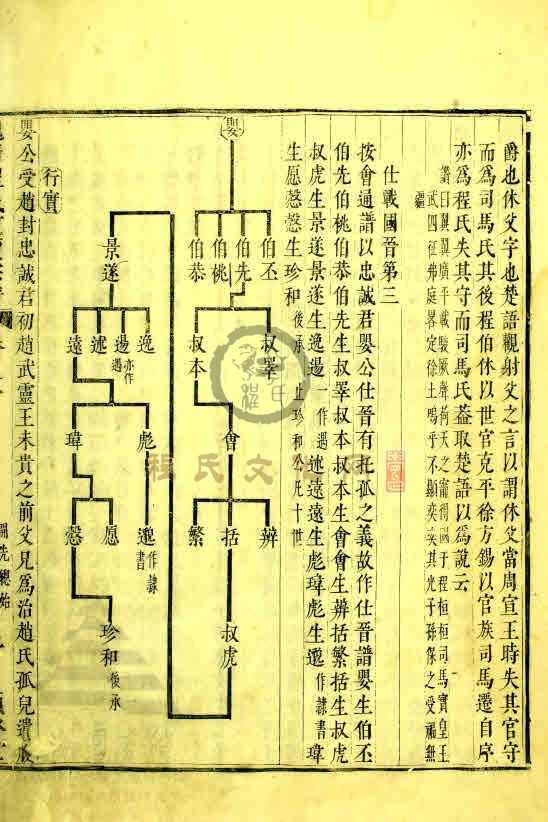 爵也休父字也楚語觀射父之言以謂休父當周宣王時失其官守
而爲司馬氏其後程伯休以世官克平徐方錫以官族司馬遷自序
亦爲程氏失其守而司馬氏葢取楚語以爲說云
武四征弗庭畧定徐土嗚乎不顯奕奕其光子孫保之受福無疆
仕戰國晉第三
按會通譜以忠誠君嬰公仕晉有托孤之義故作仕晉譜嬰生伯丕
伯先伯桃伯恭伯先生叔睪叔本叔本生會會生辨括繁括生叔虎
叔虎生景遂景遂生逸逿一作遇述遠遠生彪瑋彪生邈作隸書瑋
生愿慤慤生珍和後承止珍和公凡十世
嬰
伯丕
伯先
伯桃
伯恭
叔睪
叔本
會
辨
括
繁
叔虎
景遂
逸
逿亦作遇
述
遠
彪
瑋
邈作隸書
愿
慤
珍和後承
行實
嬰公受趙封忠誠君初趙武靈王未貴之前父兄爲治趙氏孤兒遺腹
程氏文